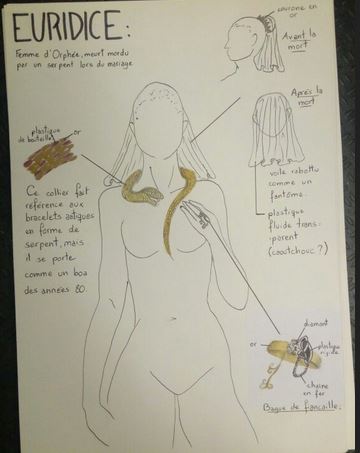 EURIDICE :
Femme d'Orphée, meurt mordu
par un serpent lors du mariage
couronne en
or
Avant la
mort
Après la
mort
voile rabattu
comme un
fantôme.
plastique
fluide trans-
parent
(caoutchouc ?)
plastique
de bouteille
or
Ce collier fait
référence aux
bracelets antiques
en forme de
serpent, mais
il se porte
comme un boa
des années 80.
diamant
or
plastique
rigide
chaine
en fer
Bague de fiancaille.